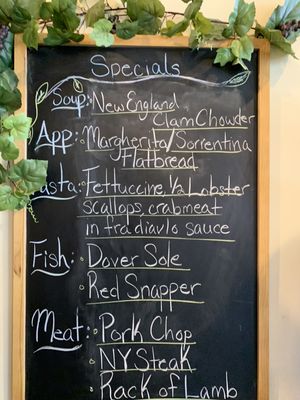 Specials
Soup: New England
Clam Chowder
App: Margherita/Sorrentina
Flatbread
Pasta: Fettuccine, 1/2 Lobster
scallops, crabmeat
in fra diavlo sauce
Fish: Dover Sole
Red Snapper
Meat: Pork Chop
NY Steak
Rack of Lamb